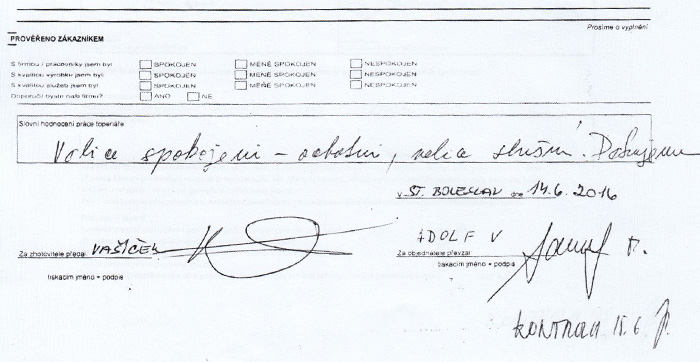 Prosíme o vyplnění
PROVĚŘENO ZÁKAZNÍKEM
S firmou / pracovníky jsem byl SPOKOJEN MÉNĚ SPOKOJEN NESPOKOJEN
S kvalitou výrobku jsem byl SPOKOJEN MÉNĚ SPOKOJEN NESPOKOJEN
S kvalitou služeb jsem byl SPOKOJEN MÉNĚ SPOKOJEN NESPOKOJEN
Doporučil byste naši firmu? ANO NE
Slovní hodnocení práce topenáře
Velice spokojeni - ochotni, velice slušní. Děkujeme
v ST. BOLESLAV dne 14.6.2016
Za zhotovitele předal VAŠÍČEK
ADOLF V
Za objednatele převzal
tiskacím jméno + podpis
tiskacím jméno + podpis